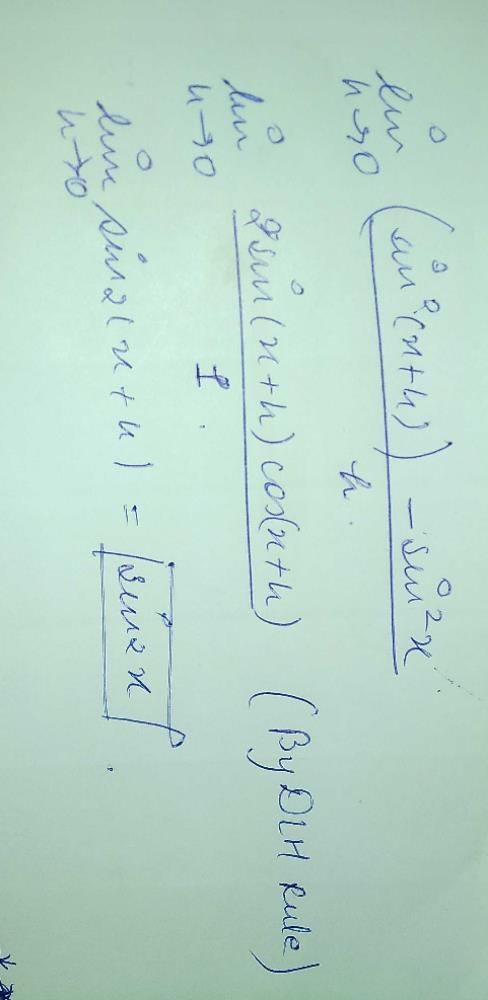 lim h→0 (sin²(x+h)) - sin²x / h.
lim h→0 2sin(x+h)cos(x+h) / 1. (By DLH Rule)
lim h→0 sin2(x+h) = sin2x.